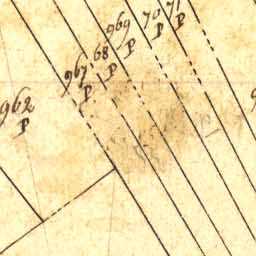 962
P
967
P
68
P
969
P
70
P
71
P